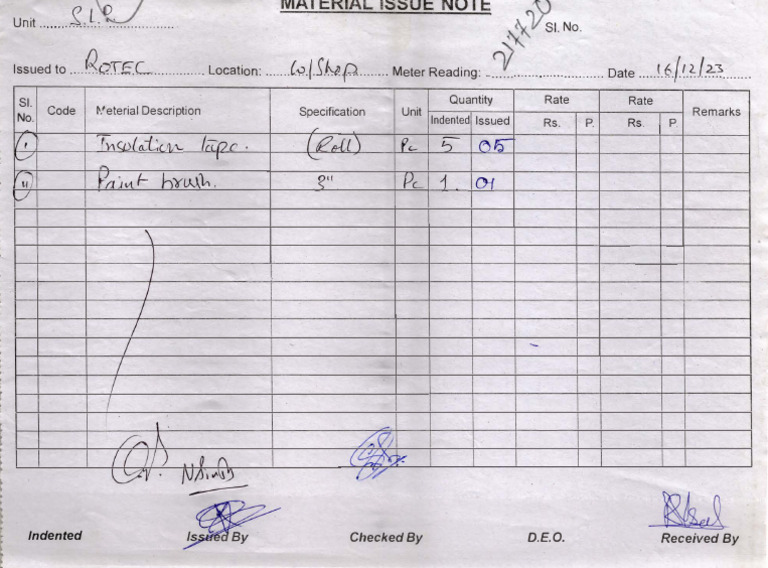 MATERIAL ISSUE NOTE
Unit S.I.P
217720
Sl. No.
Issued to ROTEC Location: W/Shop Meter Reading: Date 16/12/23
Sl. No. Code Meterial Description Specification Unit Quantity Indented Issued Rate Rs. P. Rate Rs. P. Remarks
i Insolation tape. (Roll) Pc 5 05
ii Paint brush. 3" Pc 1. 01
Indented Issued By Checked By D.E.O. Received By